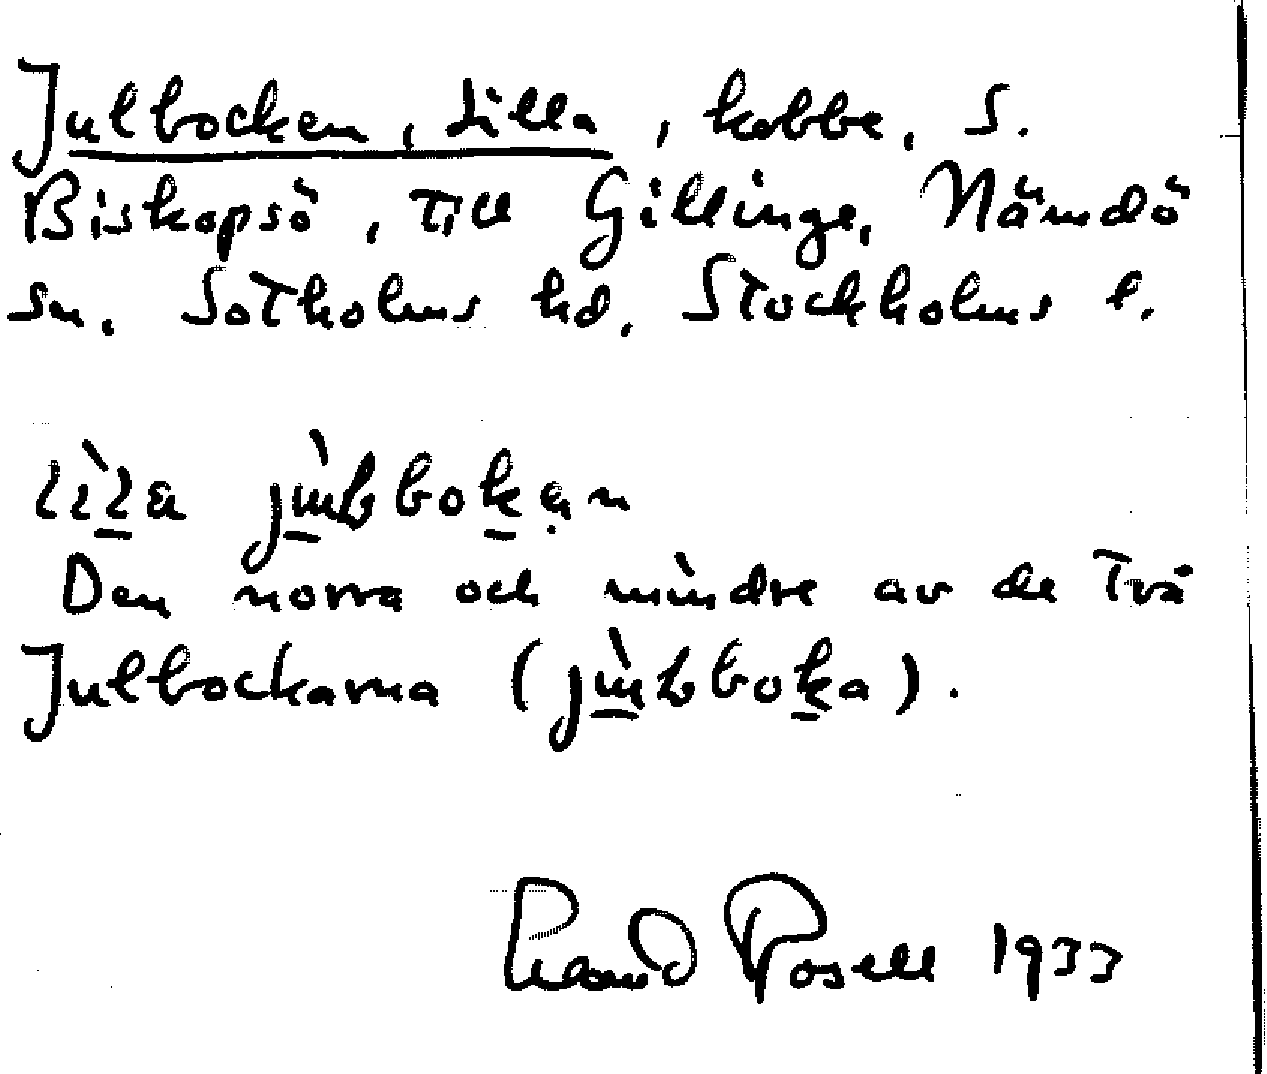 Julbocken, Lilla, kobbe, S.
Biskopsö, till Gillinge, Nämdö
sn. Sotholms hd. Stockholms l.
Den norra och mindre av de två
Julbockarna
Rosell 1933